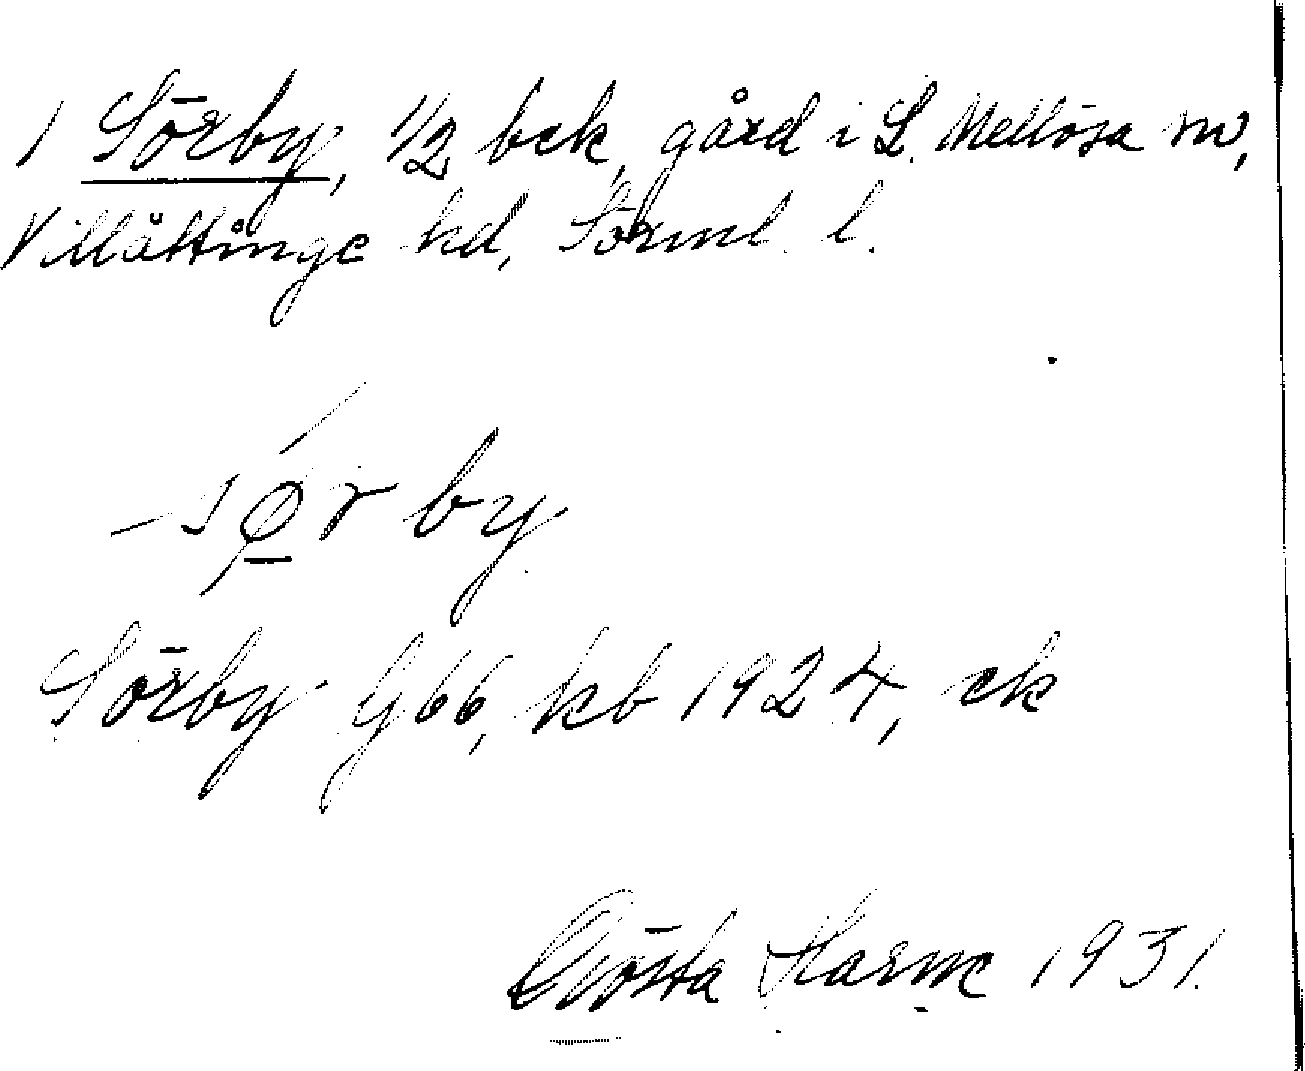 1 Sörby, 1/2 bck, gård i L. Mellösa sn,
Villåttinge hd, Sörml. l.
- sø̱r by
Sörby G66, kb 1924, ek
Gösta Harne 1931.